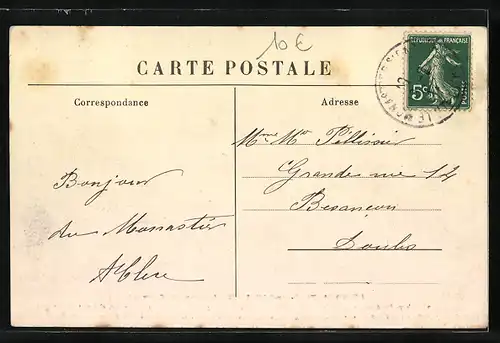 10 €
CARTE POSTALE
RÉPUBLIQUE FRANÇAISE
5c
POSTES
Correspondance
Adresse
Bonjour
du Monastier
Mme Mr Pélissier
Grande rue 14
Besançon
Doubs